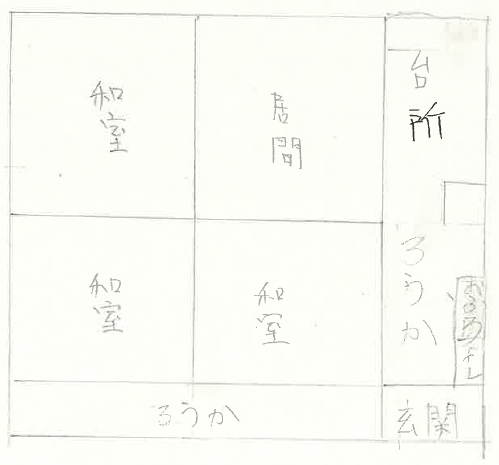 和室
居間
台所
和室
和室
ろうか
おふろ
ろうか
玄関